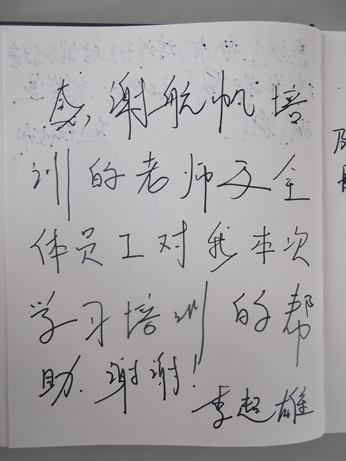 感谢航帆培
训的老师及全
体员工对我本次
学习培训的帮
助.谢谢!
李超雄
及